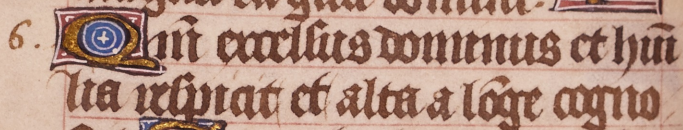 6. Qm̄ excelsus dominus et hūi
lia respicit et alta a lōge cogno